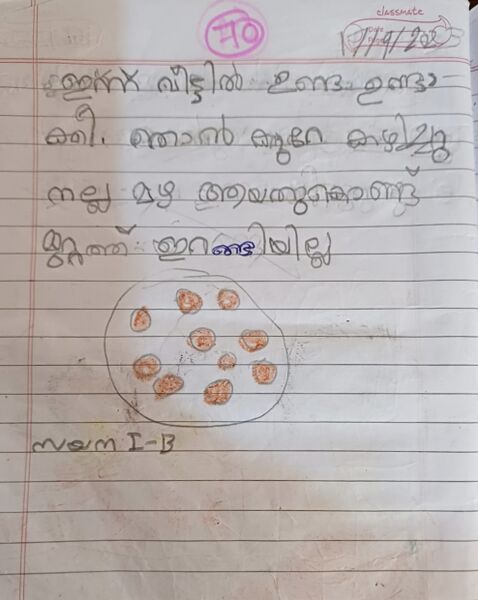 classmate
70
ഇന്ന് വീട്ടിൽ ഉണ്ട ഉണ്ടാ-
ക്കി. ഞാൻ കുറേ കഴിച്ചു
നല്ല മഴ ആയതുകൊണ്ട്
മുറ്റത്ത് ഇറങ്ങിയില്ല
സയന I-B